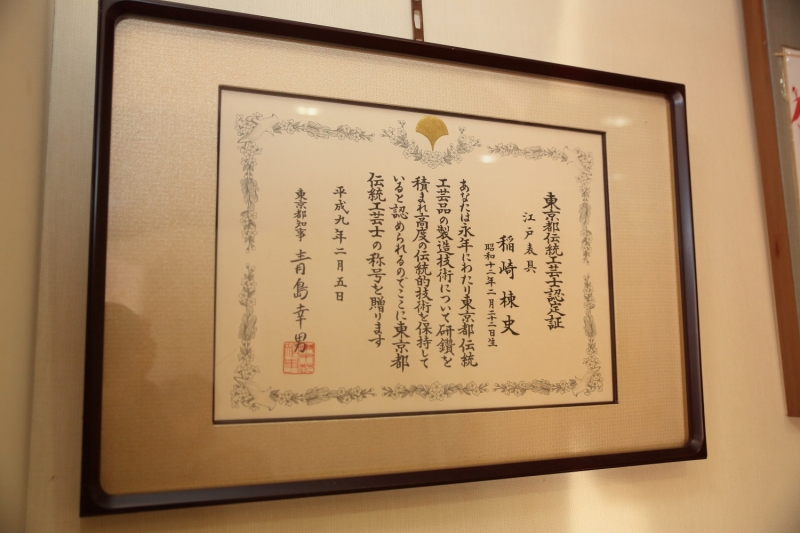 東京都伝統工芸士認定証
江戸表具
稲崎棟史
昭和十三年二月二十二日生
あなたは永年にわたり東京都伝統
工芸品の製造技術について研鑽を
積まれ高度の伝統的技術を保持して
いると認められるのでここに東京都
伝統工芸士の称号を贈ります
平成九年二月五日
東京都知事 青島幸男